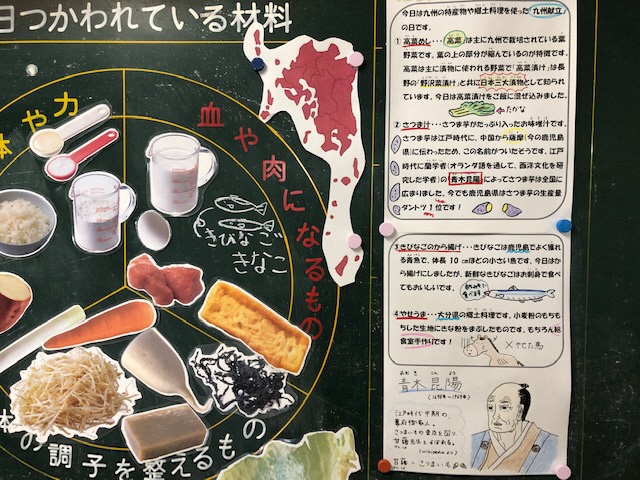 日つかわれている材料
体や力
血や肉になるもの
きびなご
きなこ
の調子を整えるもの
今日は九州の特産物や郷土料理を使った「九州献立」
の日です。
①高菜めし・・・「高菜」は主に九州で栽培されている葉
野菜です。葉の上の部分が縮んでいるのが特徴です。
高菜は主に漬物に使われる野菜で「高菜漬け」は長
野の「野沢菜漬け」と共に日本三大漬物として知られ
ています。今日は高菜漬けをご飯に混ぜ込みました。
たかな
②さつま汁・・・さつま芋がたっぷり入ったお味噌汁です。
さつま芋は江戸時代に、中国から薩摩(今の鹿児島
県)に伝わったため、この名前がついたそうです。江戸
時代に蘭学者(オランダ語を通して、西洋文化を研
究した学者)の「青木昆陽」によってさつま芋は全国に
広まりました。今でも鹿児島県はさつま芋の生産量
ダントツ1位です!
3.きびなごのから揚げ・・・きびなごは鹿児島でよく獲れ
る青魚で、体長10cmほどの小さい魚です。今日はか
ら揚げにしましたが、新鮮なきびなごはお刺身で食べ
てもおいしいです。
4.やせうま・・・大分県の郷土料理です。小麦粉のもちも
ちした生地にきな粉をまぶしたものです。もちろん給
食室手作りです!
×やせた馬
あおき こんよう
青木昆陽
江戸時代中期の